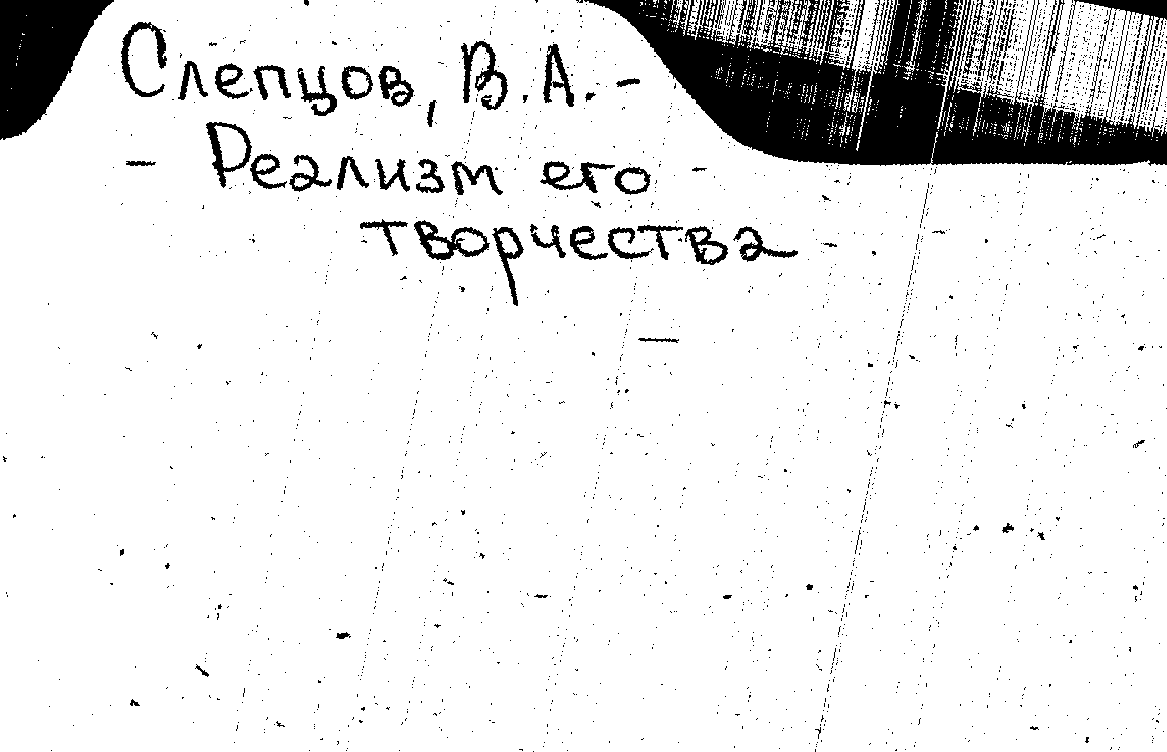 Слепцов, В.А. -
- Реализм его -
творчества